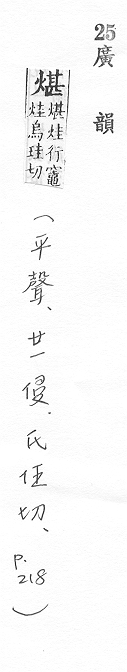 25
廣韻
煁
煁烓行竈
烓烏珪切
(平聲、廿一侵、氏任切、
p.218)